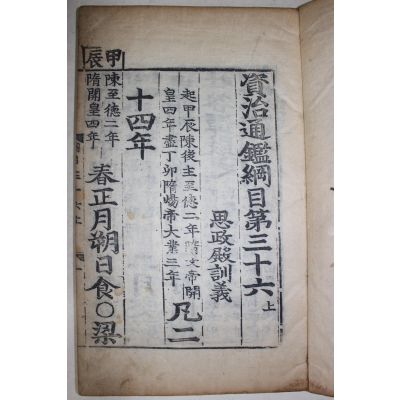 資治通鑑綱目第三十六上
思政殿訓義
起甲辰陳後主至德二年隋文帝開
皇四年盡丁卯隋煬帝大業三年
凡二
十四年
甲辰
陳至德二年
隋開皇四年
春正月朔日食〇梁